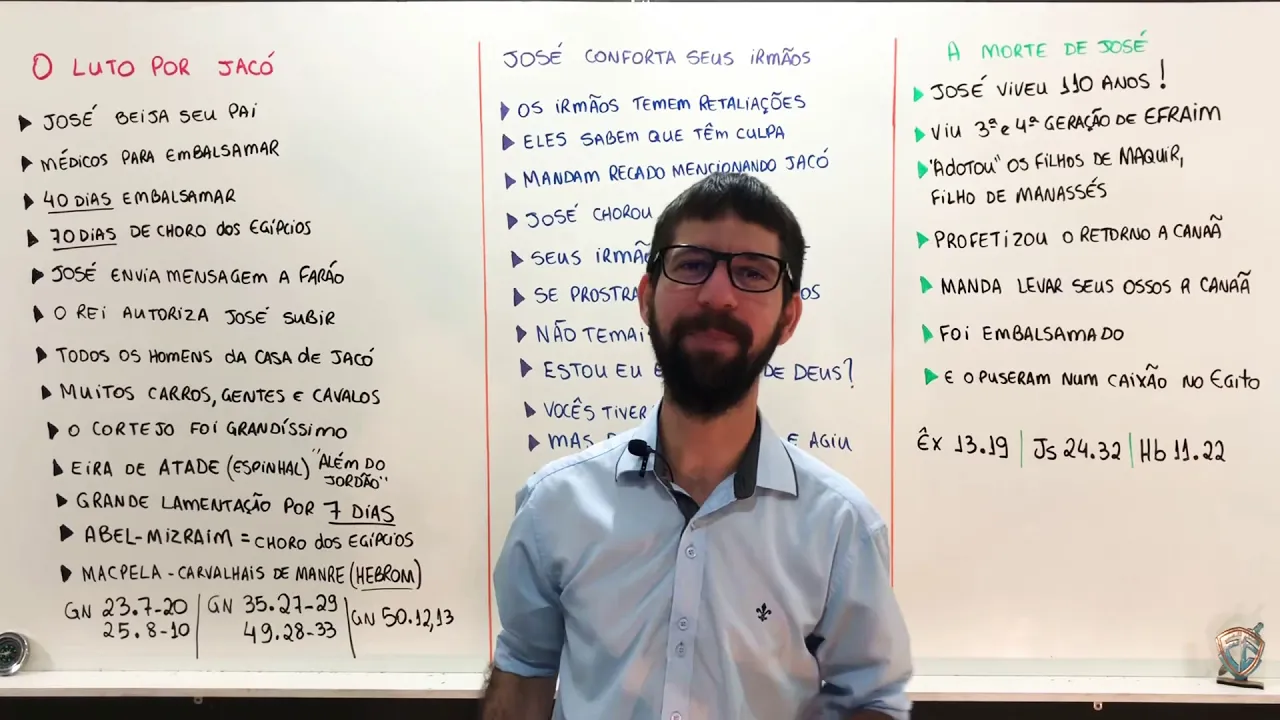 O LUTO POR JACÓ
JOSÉ BEIJA SEU PAI
MÉDICOS PARA EMBALSAMAR
40 DIAS EMBALSAMAR
70 DIAS DE CHORO DOS EGÍPCIOS
JOSÉ ENVIA MENSAGEM A FARÃO
O REI AUTORIZA JOSÉ SUBIR
TODOS OS HOMENS DA CASA DE JACÓ
MUITOS CARROS, GENTES E CAVALOS
O CORTEJO FOI GRANDÍSSIMO
EIRA DE ATADE (ESPINHAL) "ALÉM DO JORDÃO"
GRANDE LAMENTAÇÃO POR 7 DIAS
ABEL-MIZRAIM = CHORO DOS EGÍPCIOS
MACPELA - CARVALHAIS DE MANRE (HEBROM)
GN 23.7-20 | GN 35.27-29 | GN 50.12,13
25.8-10 | 49.28-33
JOSÉ CONFORTA SEUS IRMÃOS
OS IRMÃOS TEMEM RETALIAÇÕES
ELES SABEM QUE TÊM CULPA
MANDAM RECADO MENCIONANDO JACÓ
JOSÉ CHOROU
SEUS
SE
NÃO
ESTOU EU DE DEUS?
VOCÊS
MAS E AGIU
A MORTE DE JOSÉ
JOSÉ VIVEU 110 ANOS!
VIU 3ª e 4ª GERAÇÃO DE EFRAIM
"ADOTOU" OS FILHOS DE MAQUIR,
FILHO DE MANASSÉS
PROFETIZOU O RETORNO A CANAÃ
MANDA LEVAR SEUS OSSOS A CANAÃ
FOI EMBALSAMADO
E O PUSERAM NUM CAIXÃO NO EGITO
ÊX 13.19 | JS 24.32 | Hb 11.22